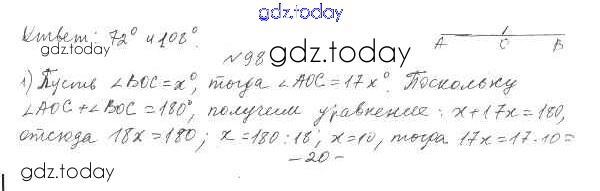 gdz.today
Ответ: 72° и 108°.
gdz.today
A O B
№98
gdz.today
1) Пусть ∠BOC=x°, тогда ∠AOC=17x°. Поскольку
∠AOC+∠BOC=180°, получим уравнение: x+17x=180,
отсюда 18x=180; x=180:18; x=10, тогда 17x=17·10=
-20-
gdz.today